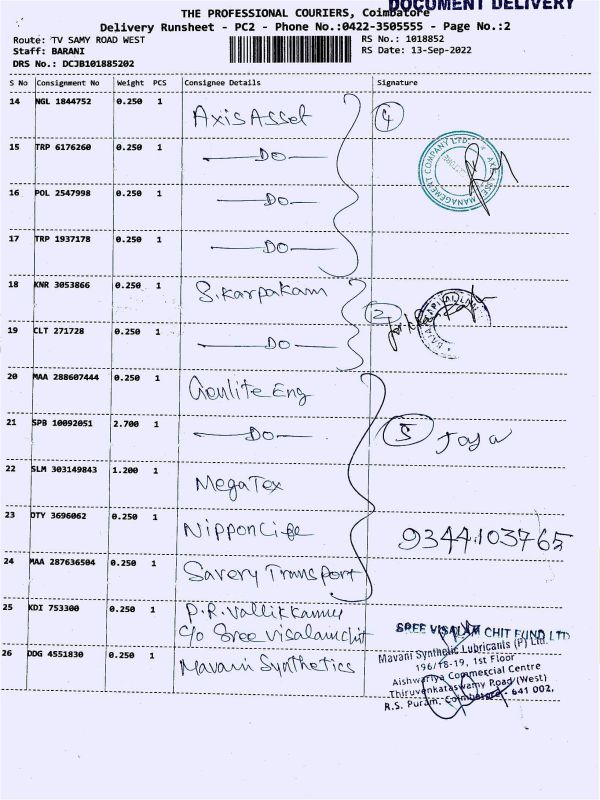 DOCUMENT DELIVERY
THE PROFESSIONAL COURIERS, Coimbatore
Delivery Runsheet - PC2 - Phone No.:0422-3505555 - Page No.:2
Route: TV SAMY ROAD WEST RS No.: 1018852
Staff: BARANI RS Date: 13-Sep-2022
DRS No.: DCJB101885202
S No Consignment No Weight PCS Consignee Details Signature
14 NGL 1844752 0.250 1 Axis Asset 4
15 TRP 6176260 0.250 1 DO
MANAGEMENT COMPANY LTD
16 POL 2547998 0.250 1 DO
17 TRP 1937178 0.250 1 DO
18 KNR 3053866 0.250 1 S. Karpakam 2
19 CLT 271728 0.250 1 DO
20 MAA 288607444 0.250 1 Eng
21 SPB 10092051 2.700 1 DO 5 Jaya
22 SLM 303149843 1.200 1 MegaTex
23 OTY 3696062 0.250 1 Nippon Life 9344103765
24 MAA 287636504 0.250 1 Savery Transport
25 KDI 753300 0.250 1 P.R. Vallikkannu
c/o Sree Visalamchit SREE VISALAM CHIT FUND LTD
26 DDG 4551830 0.250 1 Mavani Synthetics
Mavani Synthetic Lubricants (P) Ltd.
196/18-19, 1st Floor
Aishwariya Commercial Centre
Thiruvenkataswamy Road (West)
R.S. Puram, Coimbatore - 641 002.